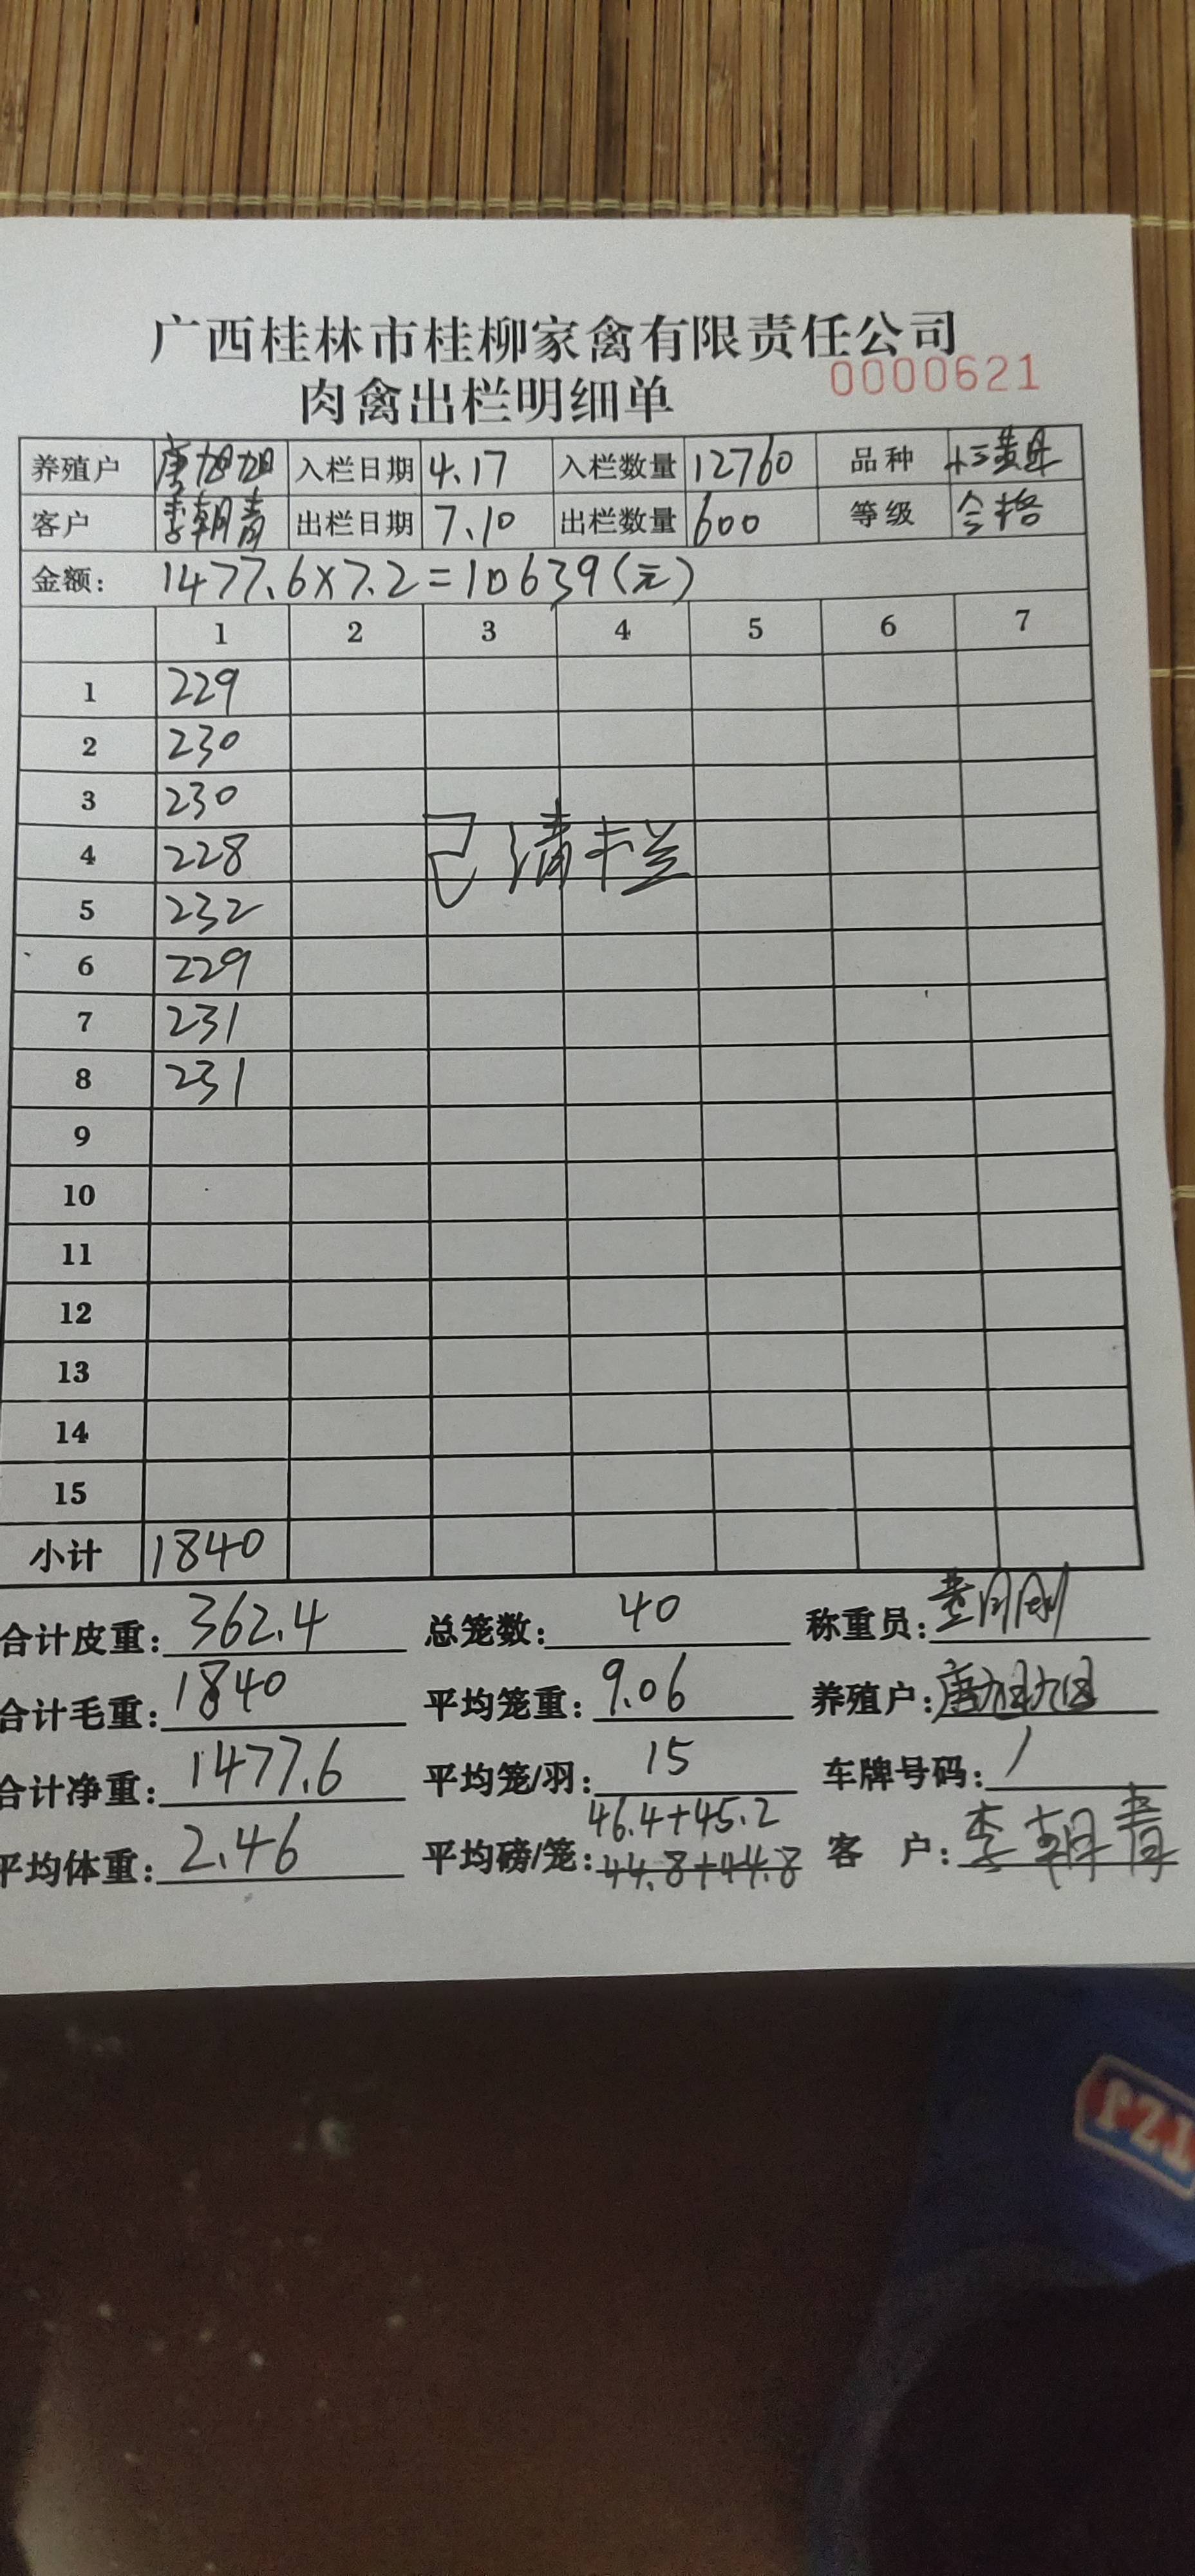 广西桂林市桂柳家禽有限责任公司
肉禽出栏明细单 0000621
养殖户 唐旭旭 入栏日期 4.17 入栏数量 12760 品种
客户 李朝青 出栏日期 7.10 出栏数量 600 等级 合格
金额: 1477.6×7.2=10639(元)
1 2 3 4 5 6 7
1 229
2 230
3 230
4 228 已清栏
5 232
6 229
7 231
8 231
9
10
11
12
13
14
15
小计 1840
合计皮重: 362.4 总笼数: 40 称重员:
合计毛重: 1840 平均笼重: 9.06 养殖户: 唐旭旭
合计净重: 1477.6 平均笼/羽: 15 车牌号码: /
46.4+45.2
平均体重: 2.46 平均磅/笼: 44.8+44.8 客 户: 李朝青